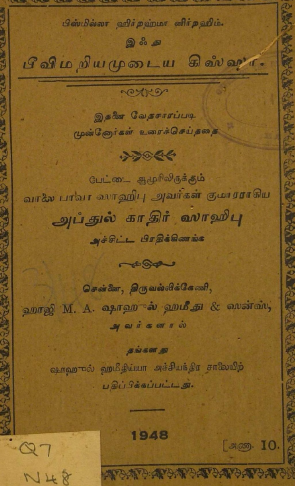 பிஸ்மில்லா ஹிர்றஹ்மா னிர்றஹீம்.
இஃது
பீவிமறியமுடைய கிஸ்ஸா.
இதனை வேதசாரப்படி
முன்னோர்கள் உரைச்செய்ததை
பேட்டை ஆமூரிலிருக்கும்
வாலை பாவா ஸாஹிபு அவர்கள் குமாரராகிய
அப்துல் காதிர் ஸாஹிபு
அச்சிட்ட பிரதிக்கிணங்க
சென்னை, திருவல்லிக்கேணி,
ஹாஜி M. A. ஷாஹுல் ஹமீது & ஸன்ஸ்,
அவர்களால்
தங்களது
ஷாஹுல் ஹமீதிய்யா அச்சியந்திர சாலையிற்
பதிப்பிக்கப்பட்டது.
1948
[அணா 10.
Q7
N48